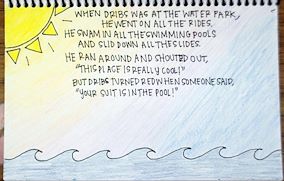 WHEN DRIBS WAS AT THE WATER PARK,
HE WENT ON ALL THE RIDES.
HE SWAM IN ALL THE SWIMMING POOLS
AND SLID DOWN ALL THE SLIDES.
HE RAN AROUND AND SHOUTED OUT,
"THIS PLACE IS REALLY COOL!"
BUT DRIBS TURNED RED WHEN SOMEONE SAID,
"YOUR SUIT IS IN THE POOL!"